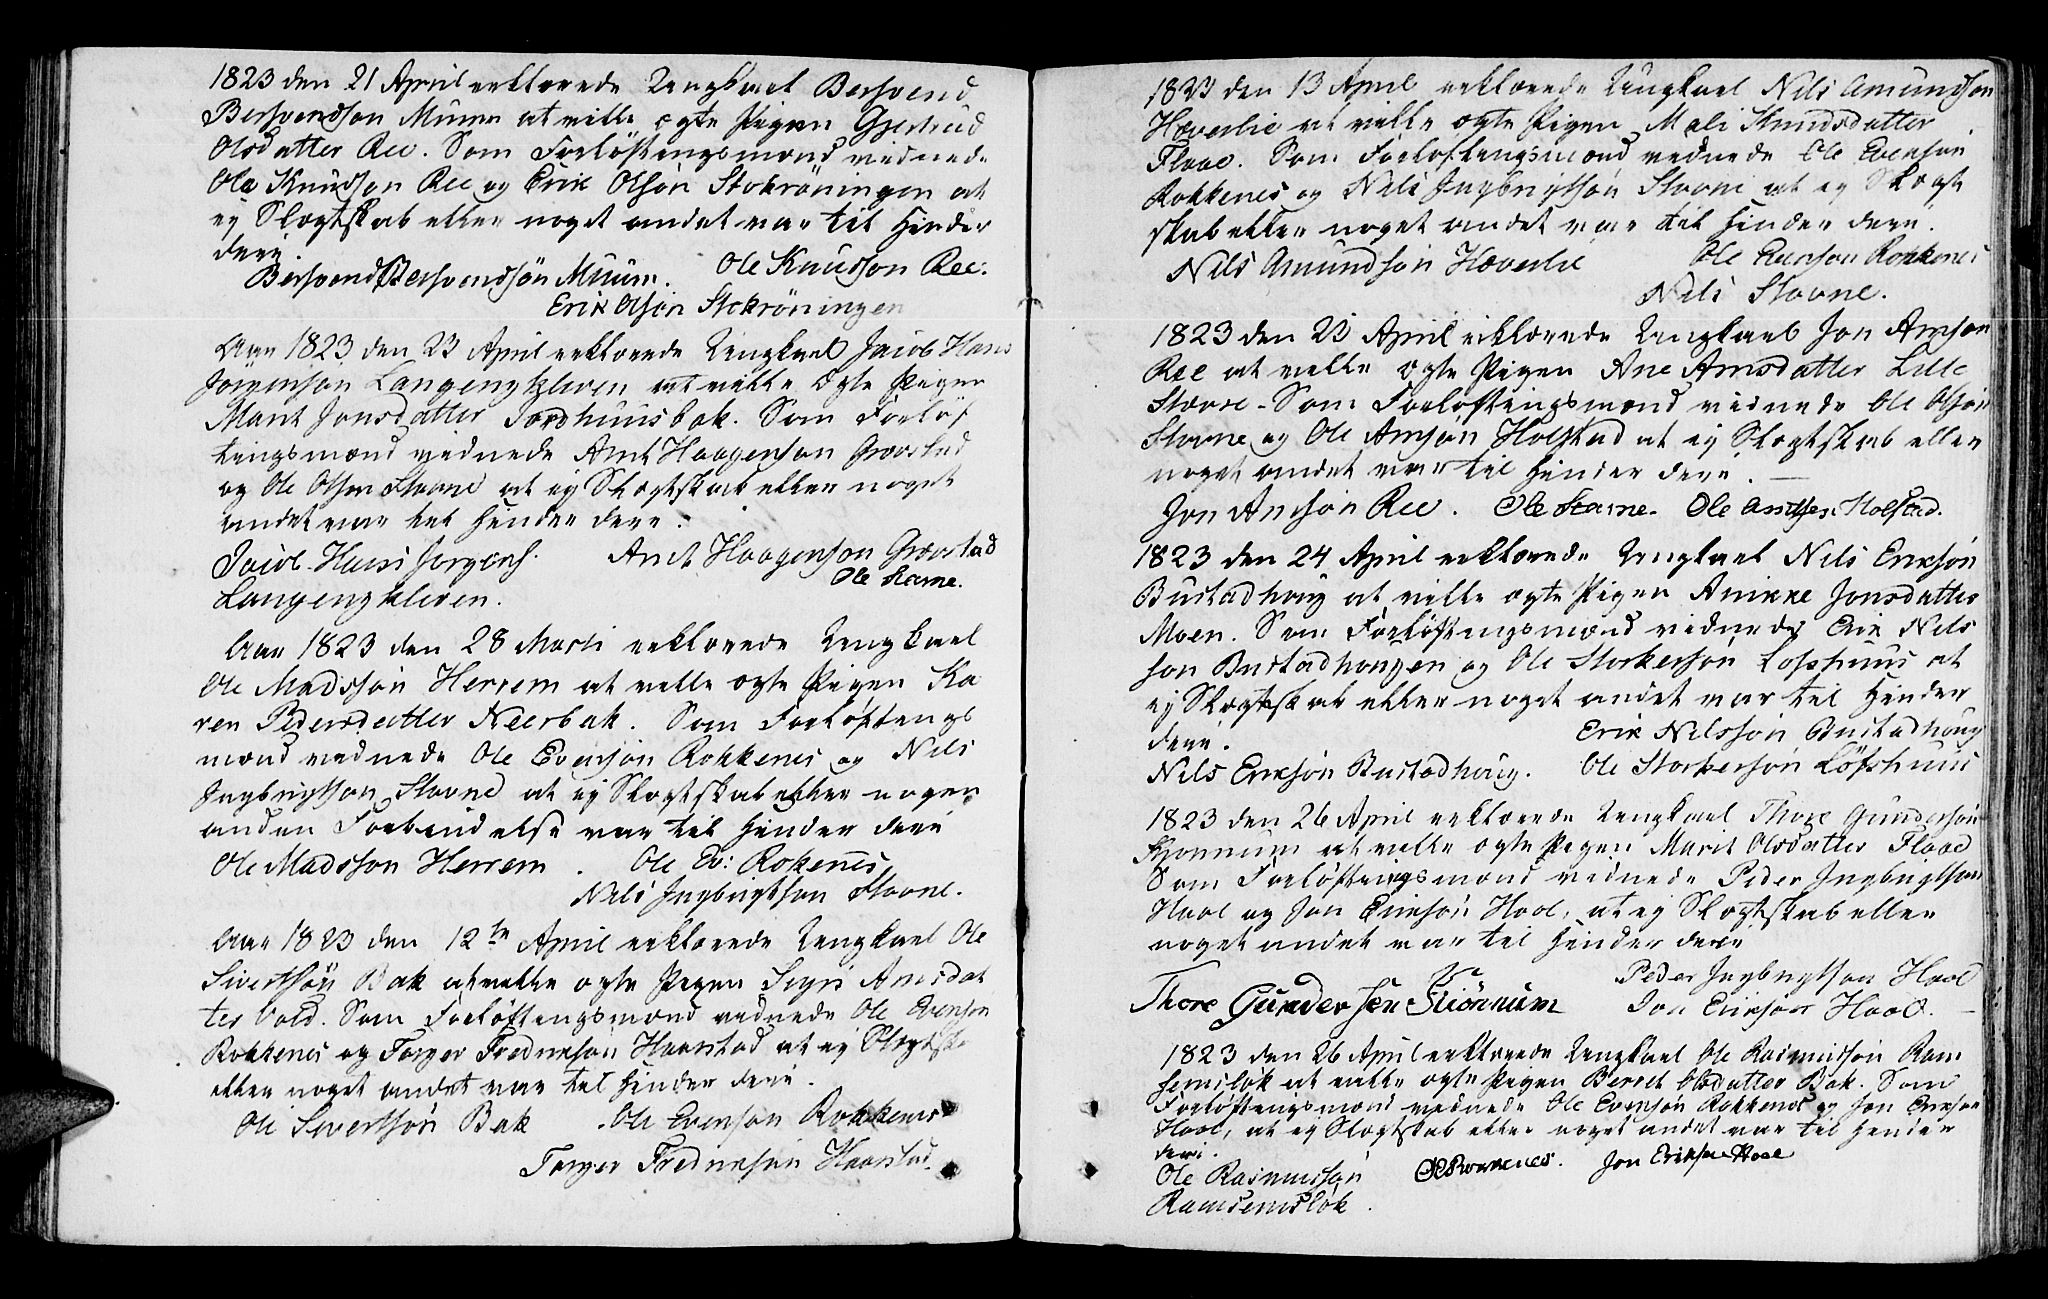 1823 den 21 April erklærede Ungkael Bersvend
Bersvendson Muum at ville ægte Pigen Gjertrud
Olsdatter Ree. Som Forløftingsmænd vidnede
Ole Knudson Ree og Erik Olsön Stokröningen at
ej Slægtskab eller noget andet var til Hinder
deri.
Bersvend Bersvendsön Muum. Ole Knudson Ree.
Erik Olsön Stokröningen
Aar 1823 den 23 April erklærede Ungkael Jacob Hans
Jörgenson Langengkleven at ville ægte Pigen
Marit Jonsdatter Jordhuusbak. Som Forløf
tingsmænd vidnede Arnt Haagenson Grøvstad
og Ole Olsen Stavne at ej Slægtskab eller noget
andet var til Hinder deri.
Jacob Hans Jørgens. Arnt Haagenson Grøvstad
Ole Stavne.
Langengkleven.
Aar 1823 den 28 Marti erklærede Ungkael
Ole Madssön Herrem at ville ægte Pigen Ka
ren Pedersdatter Neerbak. Som Forløftings
mænd vidnede Ole Evensön Rokkenes og Nils
Ingbrigtson Stavne at ej Slægtskab eller nogen
anden Forbindelse var til Hinder deri
Ole Madsson Herrem. Ole Ev: Rokenes
Nils Ingbrigtson Stavne.
Aar 1823 den 12te April erklærede Ungkael Ole
Sivertsön Bak at ville ægte Pigen Sigri Arnsdat
ter Vold. Som Forløftingsmænd vidnede Ole Evenson
Rokkenes og Torger Fredrikson Haarstad at ej Slegtsk
eller noget andet var til Hinder deri.
Ole Sivertsön Bak Ole Evenson Rokkenes
Torger Fredrikson Haarstad.
1823 den 13 April erklærede Ungkael Nils Amundson
Hæverlie at ville ægte Pigen Mali Knudsdatter
Flaae. Som Forløftingsmænd vidnede Ole Evenson
Rokkenes og Nils Ingbrigtsön Stavne at ej Slægt
skab eller noget andet var til Hinder deri.
Nils Amundson Hæverlie Ole Evenson Rokkenes
Nils Stavne.
1823 den 23 April erklærede Ungkael Jon Arnson
Ree at ville ægte Pigen Ane Arnsdatter Lille
Stavne. Som Forløftingsmænd vidnede Ole Olsön
Stavne og Ole Arnsön Holstad at ej Slægtskab eller
noget andet var til Hinder deri.
Jon Arnsön Ree. Ole Stavne. Ole Holstad.
1823 den 24 April erklærede Ungkael Nils Eriksön
Bustadhoug at ville ægte Pigen Anikke Jonsdatter
Moen. Som Forløftingsmænd vidnede Erik Nils
son Bustadhougen og Ole Storkersön Løfshuus at
ej Slægtskab eller noget andet var til Hinder
deri.
Erik Nilsson Bustadhoug
Nils Eriksön Bustadhoug. Ole Storkersön Löfshuus
1823 den 26 April erklærede Ungkael Thore Gundersön
Kjonnum at ville ægte Pigen Marit Olsdatter Flaae
Som Forløftingsmænd vidnede Peder Ingbrigtson
Hool og Jon Eriksön Hool, at ej Slægtskab eller
noget andet var til Hinder deri
Peder Ingbrigtson Hool
Thore Gundersen Kiönnum Jon Erikson Hool.
1823 den 26 April erklærede Ungkael Ole Rasmusson Ram
semslök at ville ægte Pigen Berret Olsdatter Bak. Som
Forløftingsmænd vidnede Ole Evensön Rokkenes og Jon Erikson
Hool, at ej Slægtskab eller noget andet var til Hinder
deri.
Ole Rasmusson Ole Rokkenes. Jon Erikson Hool
Ramsemslök.